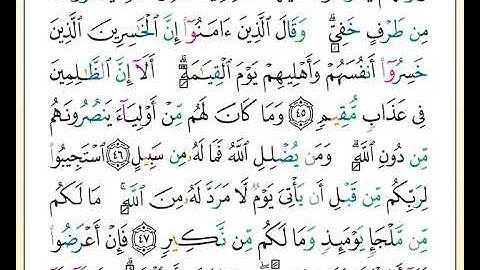 مِن طَرْفٍ خَفِيٍّ ۗ وَقَالَ الَّذِينَ ءَامَنُوٓا۟ إِنَّ الْخَٰسِرِينَ الَّذِينَ
خَسِرُوٓا۟ أَنفُسَهُمْ وَأَهْلِيهِمْ يَوْمَ الْقِيَٰمَةِ ۗ أَلَآ إِنَّ الظَّٰلِمِينَ
فِى عَذَابٍ مُّقِيمٍ ﴿٤٥﴾ وَمَا كَانَ لَهُم مِّنْ أَوْلِيَآءَ يَنصُرُونَهُم
مِّن دُونِ اللَّهِ ۗ وَمَن يُضْلِلِ اللَّهُ فَمَا لَهُۥ مِن سَبِيلٍ ﴿٤٦﴾ اسْتَجِيبُوا۟
لِرَبِّكُم مِّن قَبْلِ أَن يَأْتِىَ يَوْمٌ لَّا مَرَدَّ لَهُۥ مِنَ اللَّهِ ۚ مَا لَكُم
مِّن مَّلْجَإٍ يَوْمَئِذٍ وَمَا لَكُم مِّن نَّكِيرٍ ﴿٤٧﴾ فَإِنْ أَعْرَضُوا۟